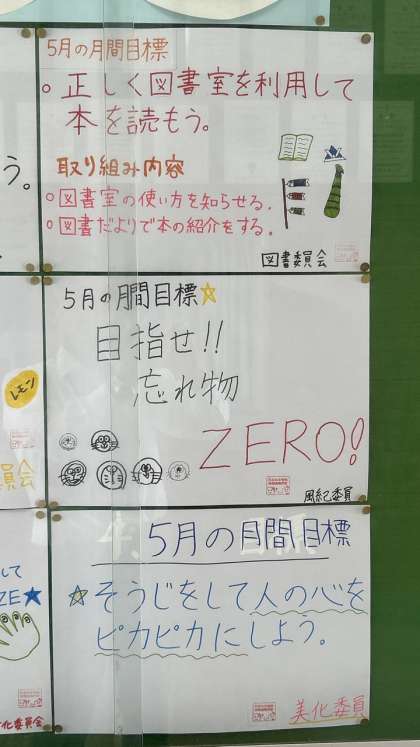 5月の月間目標
○正しく図書室を利用して
本を読もう。
取り組み内容
○図書室の使い方を知らせる.
○図書だよりで本の紹介をする.
図書委員会
う。
5月の月間目標☆
目指せ!!
忘れ物
ZERO!
風紀委員
レモン
員会
5月の月間目標
☆そうじをして人の心を
ピカピカにしよう。
美化委員
して
ZE★
化委員会